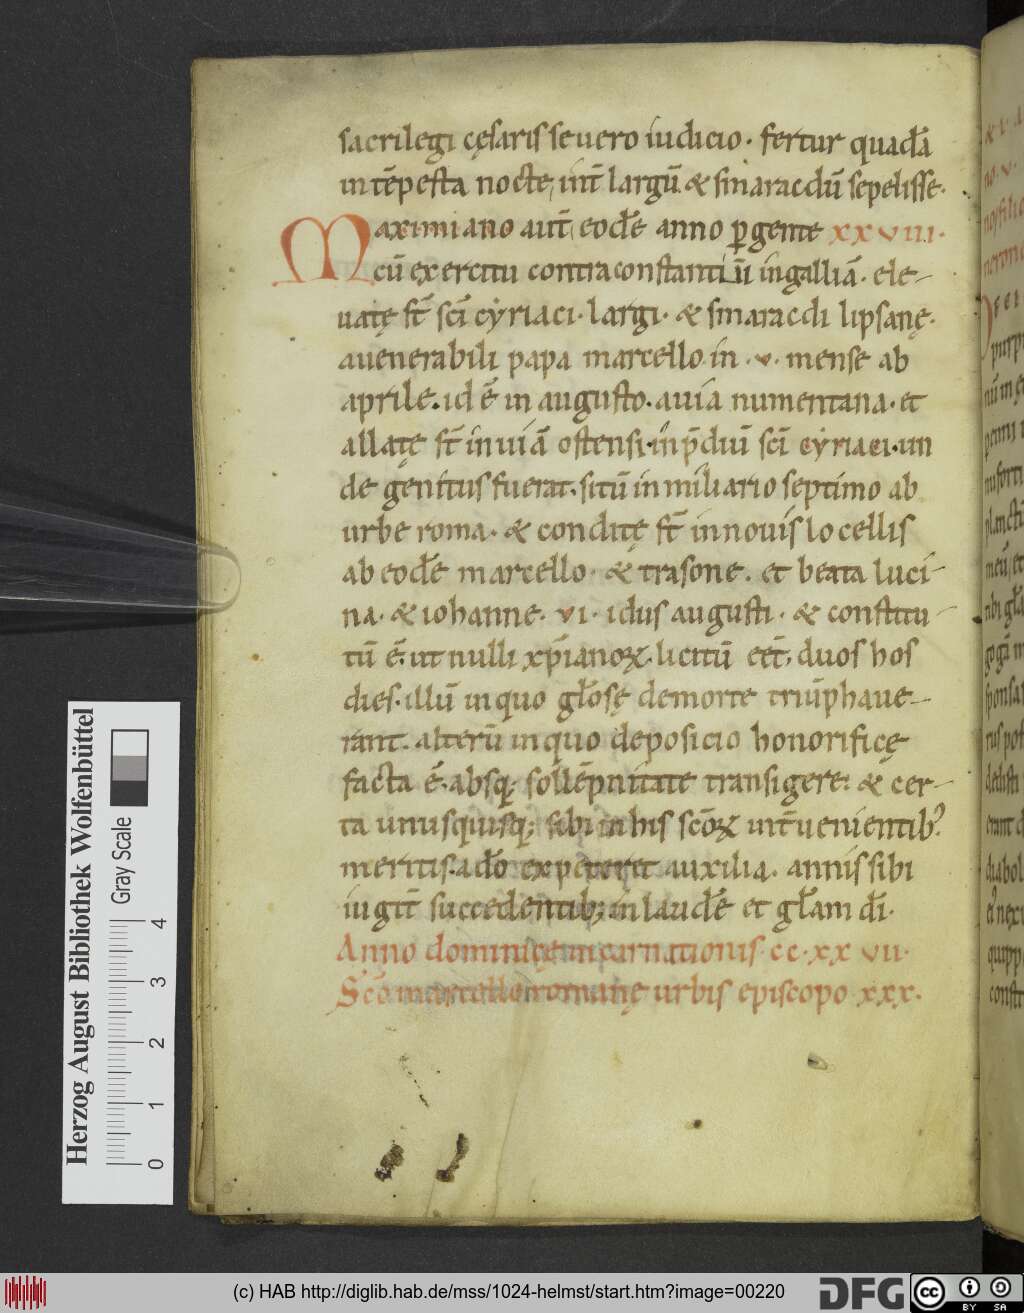 sacrilegi cęsaris seuero iudicio· fertur quadā
intēpesta nocte, int̄ largū & smaracdū sepelisse·
Maximiano aut̄ eodē anno ꝑgente xxviii·
cū exercitu contra constantiū in galliā· ele-
uatę st̄ scī cyriaci· largi· & smaracdi lipsanę·
a uenerabili papa marcello· in ·v· mense ab
aprile· id ē in augusto· a uia numentana· et
allatę st̄ in uiā ostensi· in p̄diū scī cyriaci· un
de genitus fuerat· sitū in miliario septimo ab
urbe roma· & conditę st̄ in nouis locellis
ab eodē marcello· & trasone· et beata luci-
na· & iohanne· vi· idus augusti· & constitu-
tū ē· ut nulli xp̄ianoꝝ· licitū eet̄· duos hos
dies· illū in quo gl̄osę de morte triūphaue-
rant· alterū in quo deposicio honorificę
facta ē· absq; sollēpnitate transigere· & cer-
ta unusquisq; sibi in his scōꝝ int̄uenientib᾽
meritis· a dō expeteret auxilia· annis sibi
iugit̄ succedentib; in laudē et gl̄am dī·
Anno dominicę incarnationis· cc·xx vii·
Scō marcello romanę urbis episcopo xxx·
Herzog August Bibliothek Wolfenbüttel
Gray Scale
0 1 2 3 4
(c) HAB http://diglib.hab.de/mss/1024-helmst/start.htm?image=00220
DFG
cc BY SA